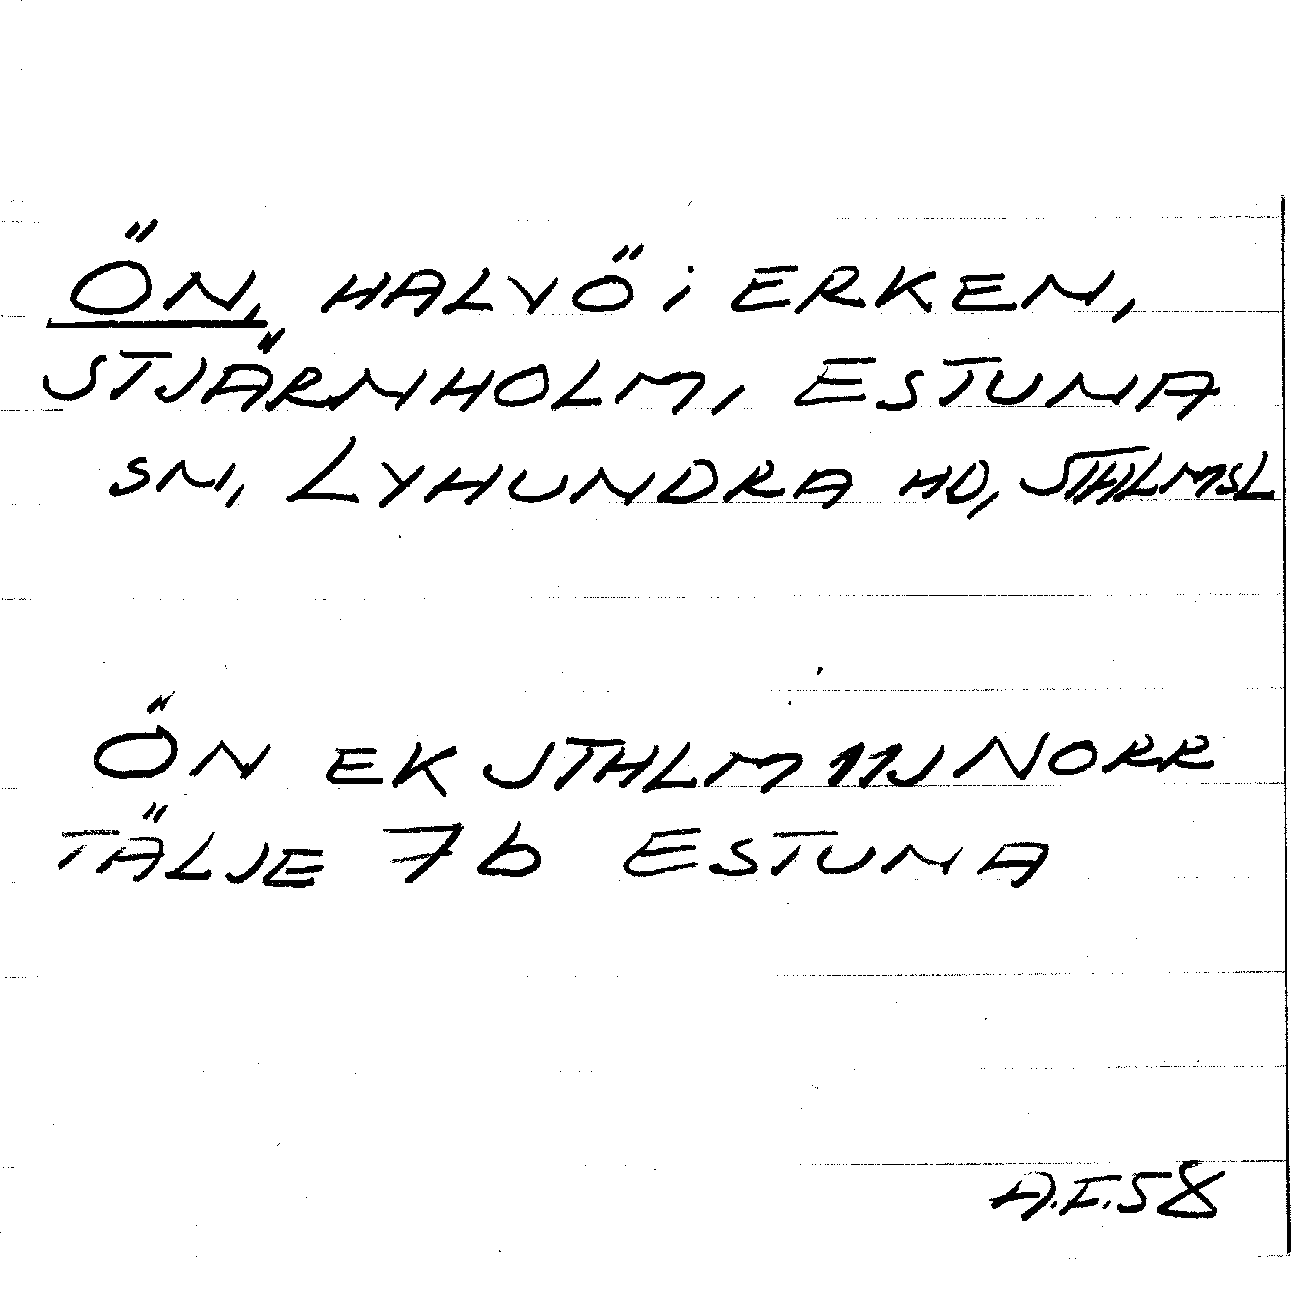 ÖN, HALVÖ i ERKEN,
STJÄRNHOLM, ESTUNA
SN, LYHUNDRA HD, STHLMSL
ÖN EK STHLM 11J NORR
TÄLJE 7b ESTUNA
A.E.58